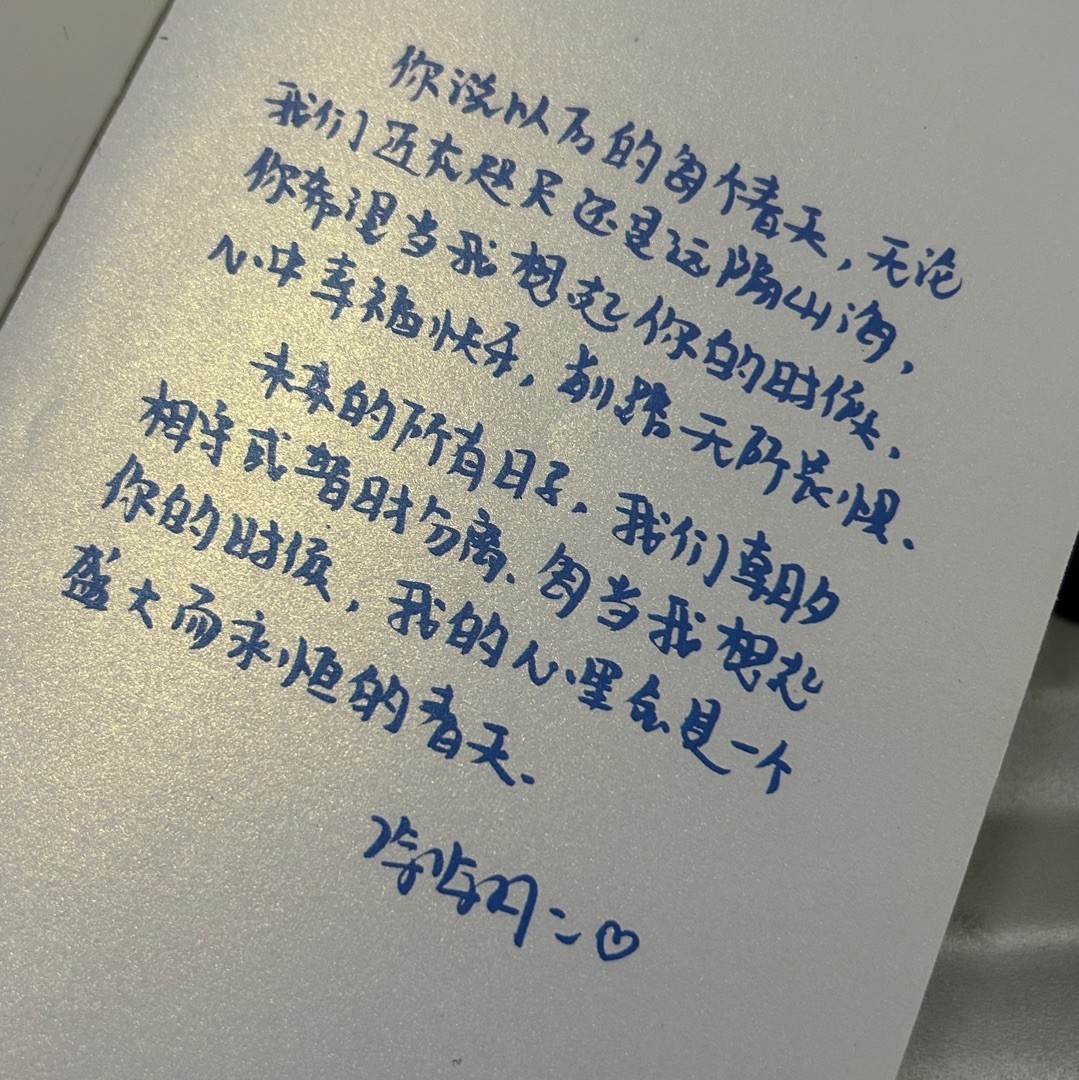 你说以后的每个春天，无论
我们近在咫尺还是远隔山海，
你希望当我想起你的时候，
心中幸福快乐，前路无所畏惧.
未来的所有日子，我们朝夕
相守或暂时分离.每当我想起
你的时候，我的心里会是一个
盛大而永恒的春天.